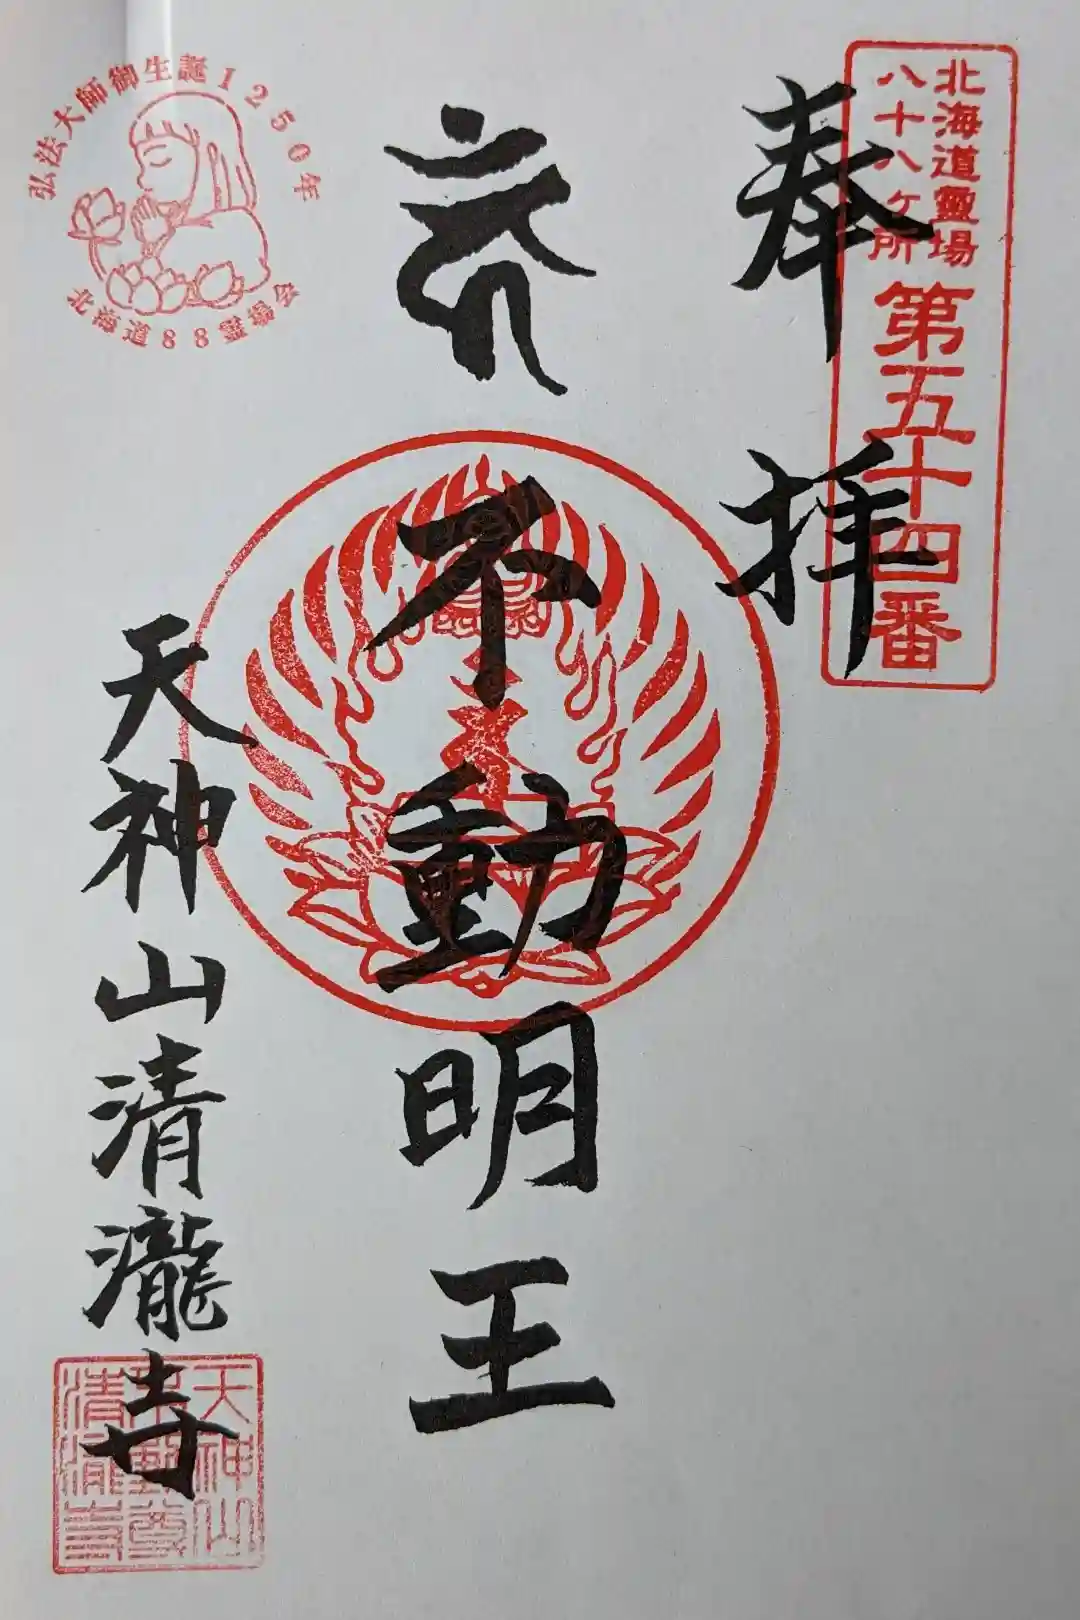 北海道霊場
八十八ヶ所
第五十四番
奉拝
不動明王
天神山清瀧寺
弘法大師御生誕1250年
北海道88霊場会
天神山
清瀧寺